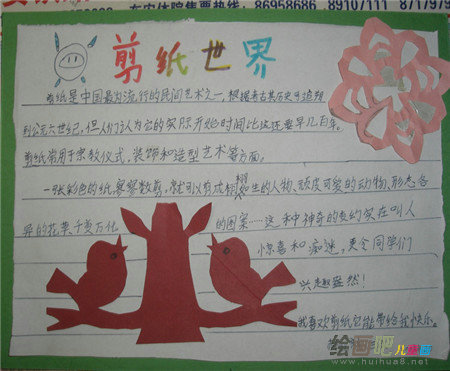 东安体院售票热线：86958686 8910/111 871/979
剪纸世界
剪纸是中国最为流行的民间艺术之一，根据考古其历史可追朔
到公元六世纪，但人们认为它的实际开始时间比这还要早几百年。
剪纸常用于宗教仪式，装饰和造型艺术等方面。
一张彩色的纸察察数剪，就可以剪成栩栩如生的人物、顽皮可爱的动物、形态各
异的花草，千变万化的图案……这种神奇的变幻实在叫人
惊喜和痴迷，更令同学们
兴趣盎然！
我喜欢剪纸它能带给我快乐。
绘画吧儿童画
www.huihua8.net